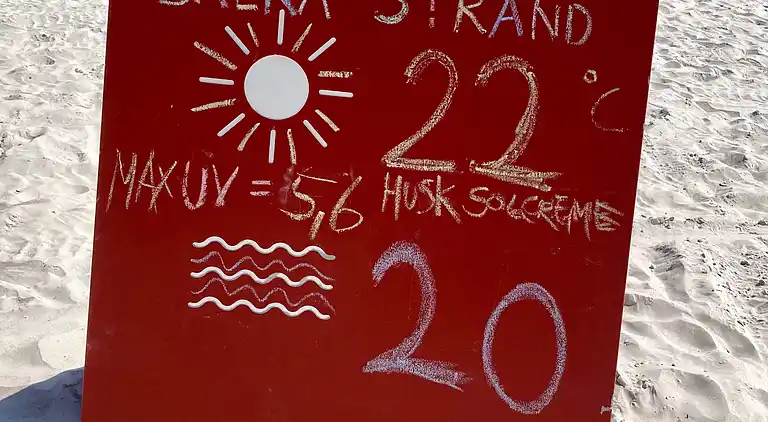 STRAND
22 °C
MAX UV = 5,6 HUSK SOLCREME
20